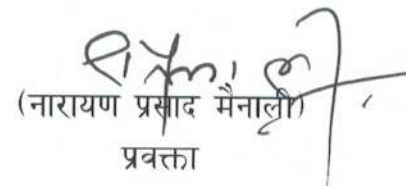 (नारायण प्रसाद मैनाली)
प्रवक्ता